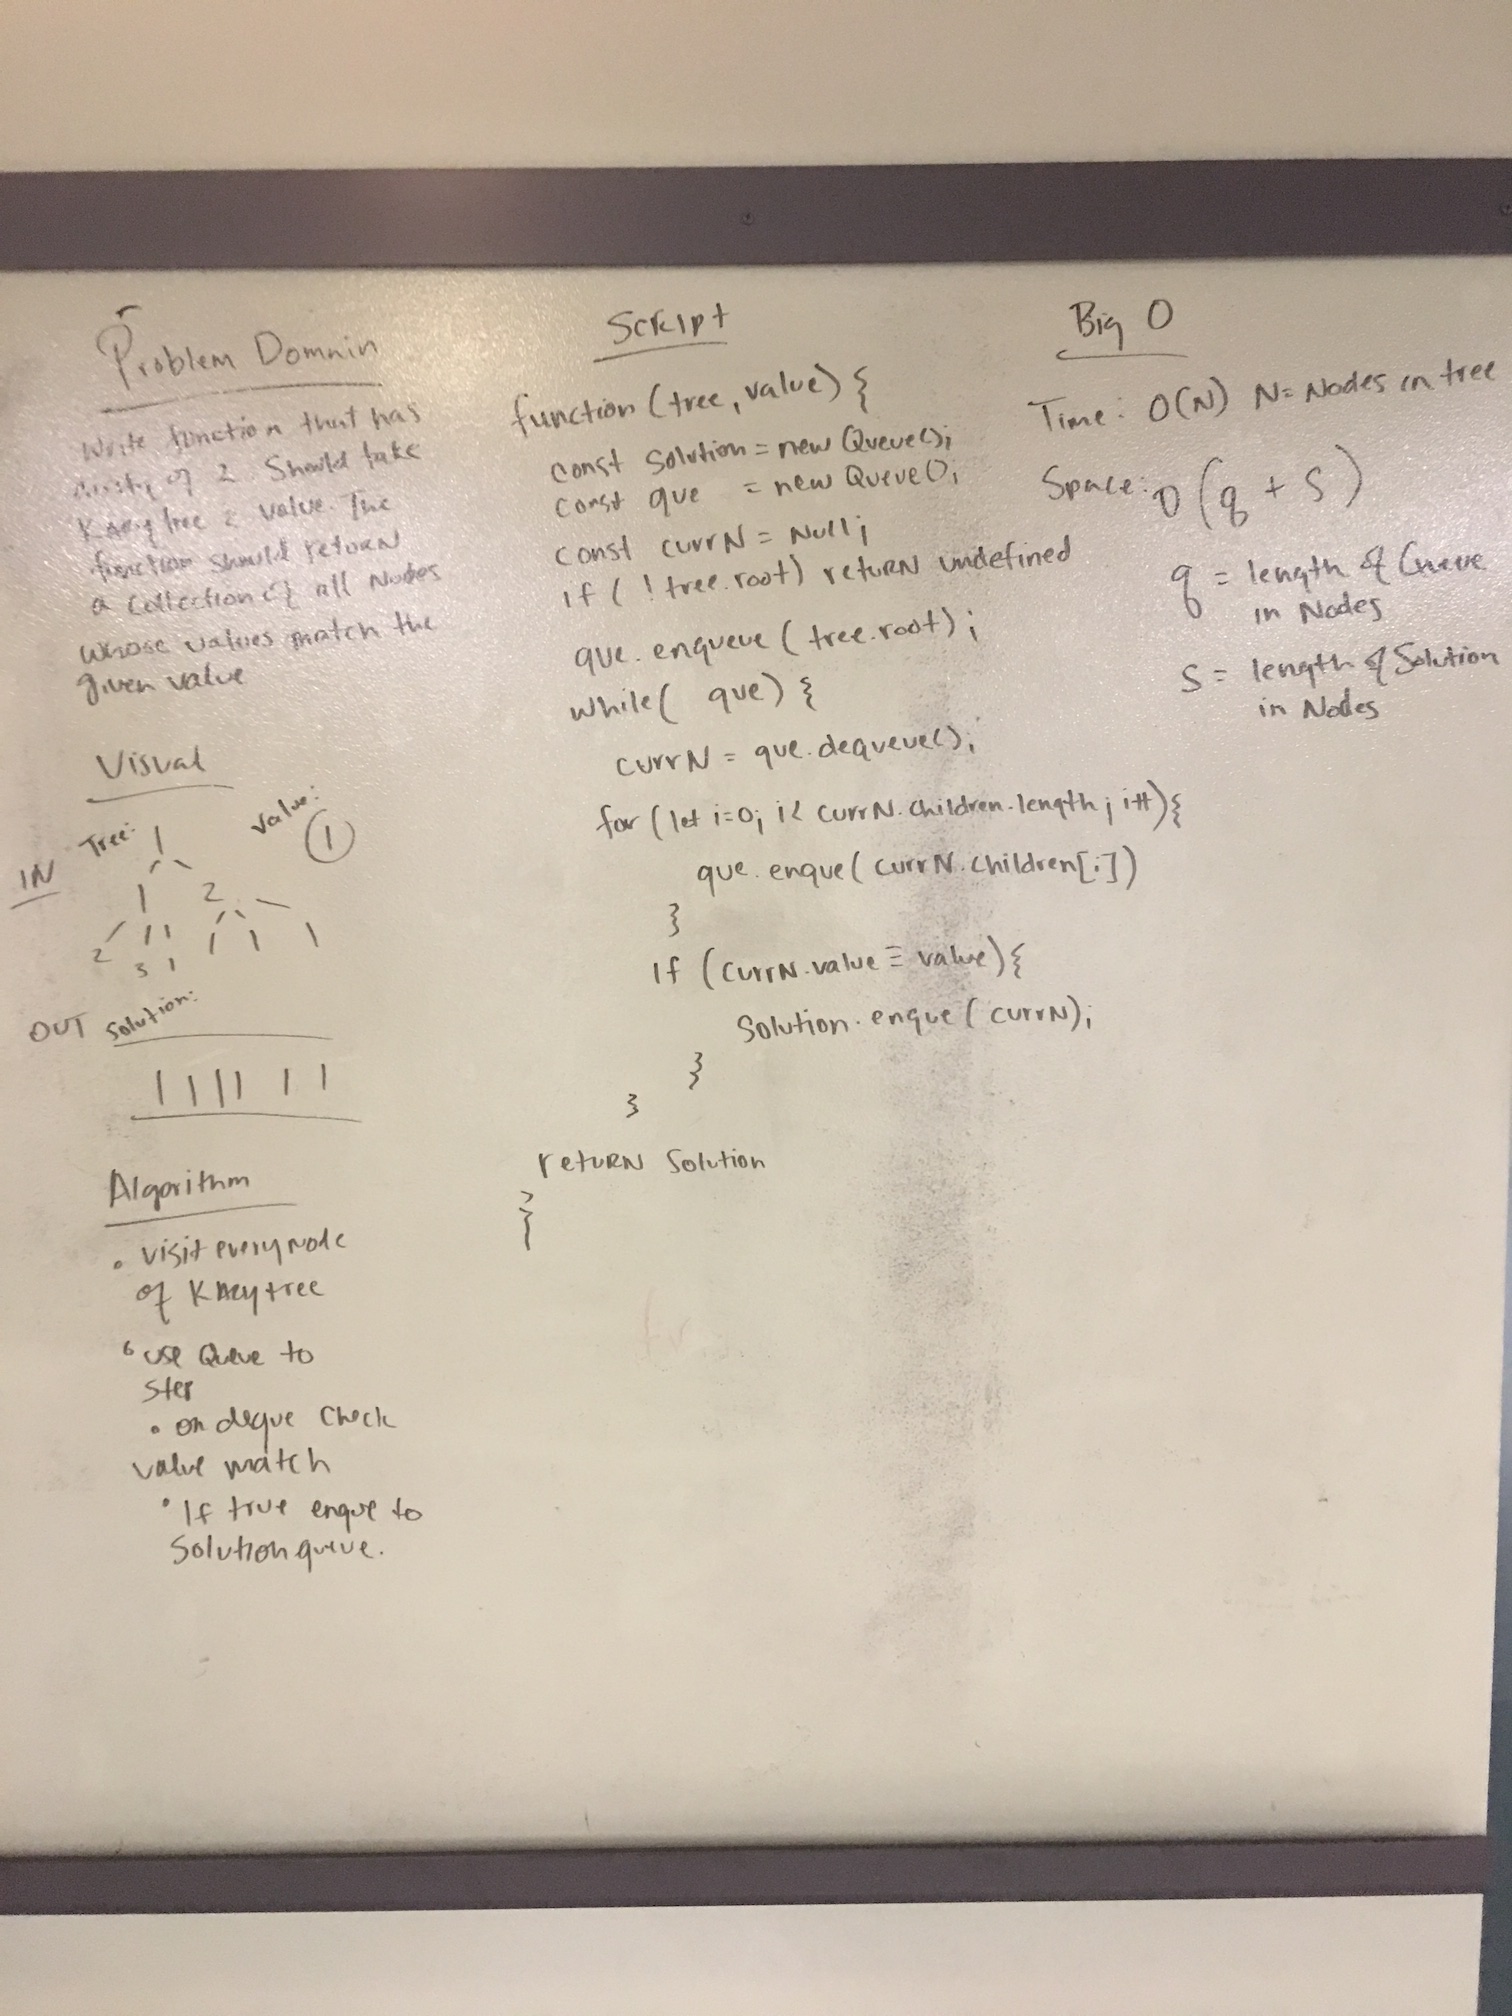 Problem Domain
Write function that has
arity of 2. Should take
KAry tree & value. The
function should return
a collection of all Nodes
whose values match the
given value
Visual
Tree: Value:
IN 1 1
1 2
2 3 1 1 1 1
OUT Solution:
1 1 1 1 1 1
Algorithm
• visit every node
of KAry tree
• use Queue to
step
• on deque check
value match
• If true enque to
Solution queue.
Script
function (tree, value) {
const solution = new Queue();
const que = new Queue();
const currN = Null;
if ( ! tree.root) return undefined
que. enqueue ( tree.root) ;
while( que) {
currN = que.dequeue();
for (let i=0; i< currN.children.length; i++){
que. enque( currN.children[i])
}
If (currN.value = value){
Solution. enque( currN);
}
}
return Solution
}
Big O
Time: O(N) N= Nodes in tree
Space: O (q + S)
q = length of Queue
in Nodes
S = length of Solution
in Nodes